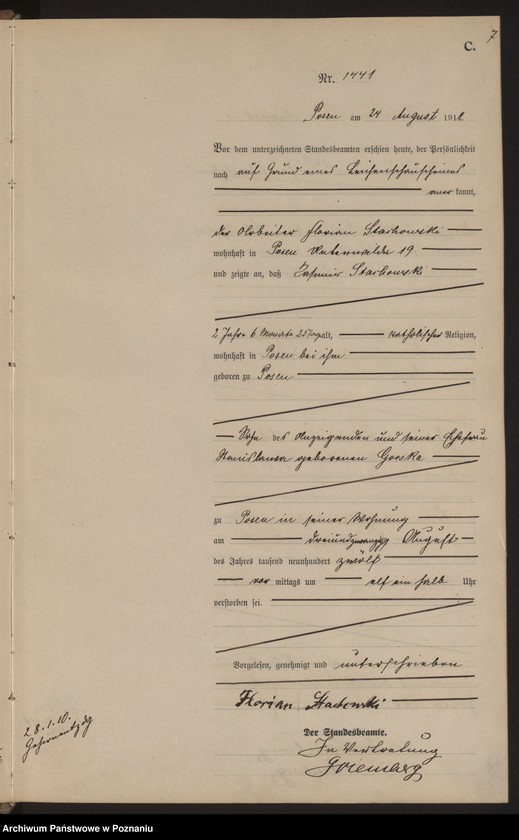 7
C.
Nr. 1441
Posen am 24 August 1912
Vor dem unterzeichneten Standesbeamten erschien heute, der Persönlichkeit
nach auf Grund eines Leichenschauscheines
aner kannt,
der Arbeiter Florian Stachowski
wohnhaft in Posen Unterwilda 19
und zeigte an, daß Kasimir Stachowski
2 Jahre 6 Monate 25 Tage alt, katholischer Religion,
wohnhaft in Posen bei ihm
geboren zu Posen
Sohn des Anzeigenden und seiner Ehefrau
Stanislawa geborenen Gorska
zu Posen in seiner Wohnung
am dreiundzwanzigsten August
des Jahres tausend neunhundert zwölf
vor mittags um elf ein halb Uhr
verstorben sei.
Vorgelesen, genehmigt und unterschrieben
Florian Stachowski
Der Standesbeamte.
In Vertretung
28.1.10.
Archiwum Państwowe w Poznaniu